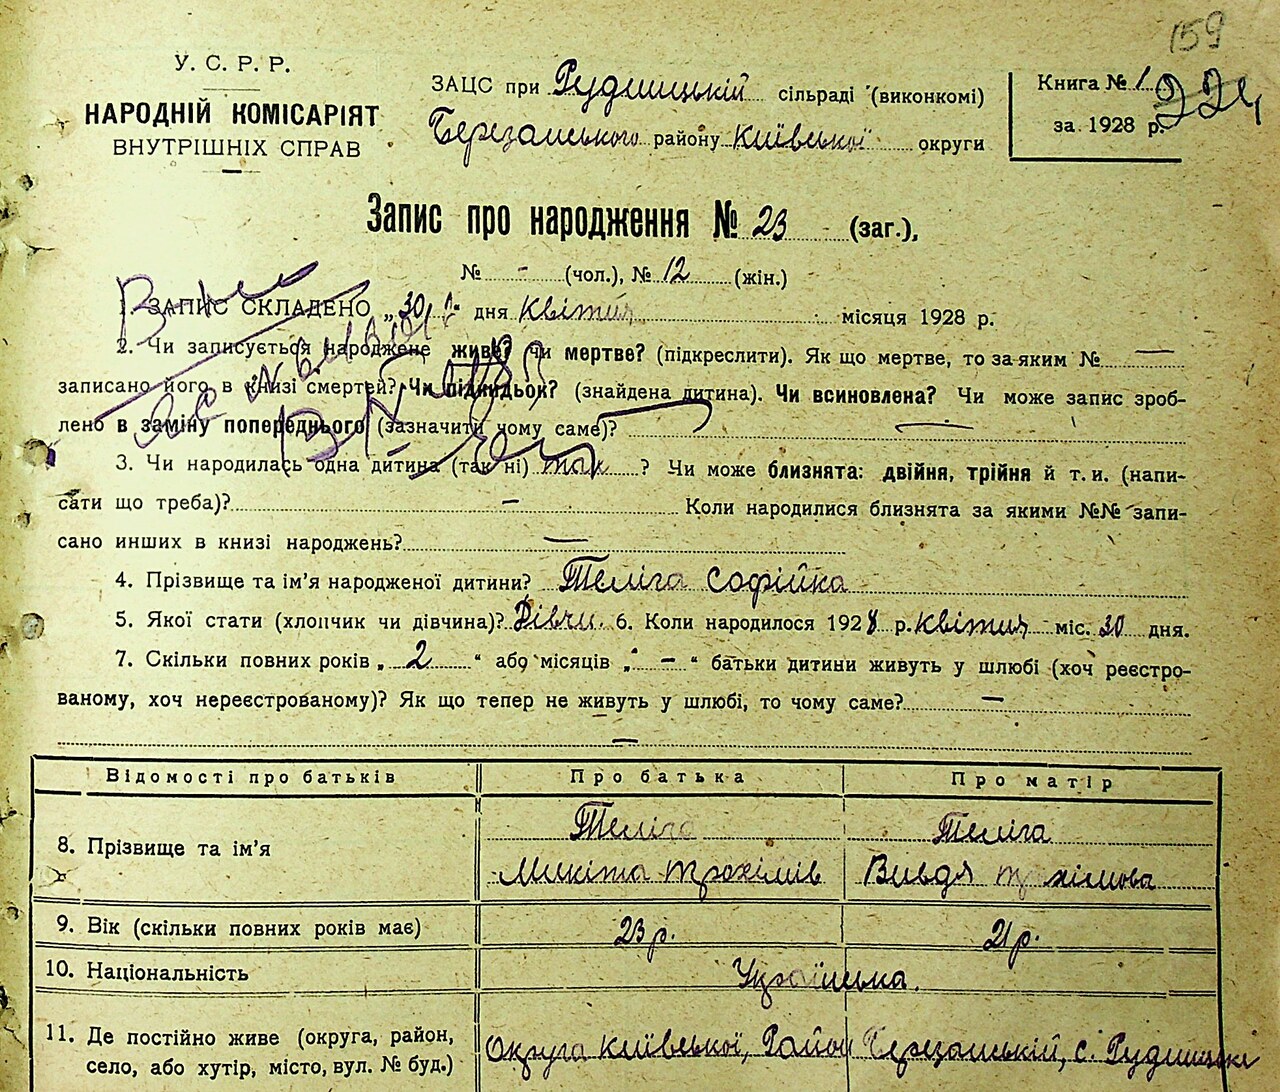 159
У. С. Р. Р.
НАРОДНІЙ КОМІСАРІЯТ
ВНУТРІШНІХ СПРАВ
ЗАЦС при Рудницькій сільраді (виконкомі)
Березанського району Київської округи
Книга № 1
за 1928 р.
Запис про народження № 23 (заг.),
№ - (чол.), № 12 (жін.)
1. ЗАПИС СКЛАДЕНО „30" дня квітня місяця 1928 р.
2. Чи записується народжене живе? чи мертве? (підкреслити). Як що мертве, то за яким № —
записано його в книзі смертей? Чи підкидьок? (знайдена дитина). Чи всиновлена? Чи може запис зроб-
лено в заміну попереднього (зазначити чому саме)? —
3. Чи народилась одна дитина (так ні) так ? Чи може близнята: двійня, трійня й т. и. (напи-
сати що треба)? — Коли народилися близнята за якими №№ запи-
сано инших в книзі народжень? —
4. Прізвище та ім'я народженої дитини? Теліга Софійка
5. Якої стати (хлопчик чи дівчина)? Дівчи. 6. Коли народилося 1928 р. квітня міс. 30 дня.
7. Скільки повних років „ 2 " або місяців „ — " батьки дитини живуть у шлюбі (хоч реєстро-
ваному, хоч нереєстрованому)? Як що тепер не живуть у шлюбі, то чому саме? —
—
Відомості про батьків Про батька Про матір
8. Прізвище та ім'я Теліга Микіта Трохимів Теліга Вивдя
9. Вік (скільки повних років має) 23 р. 21 р.
10. Національність Українська.
11. Де постійно живе (округа, район, село, або хутір, місто, вул. № буд.) Округа Київської, Район Березанській, с. Рудницьке